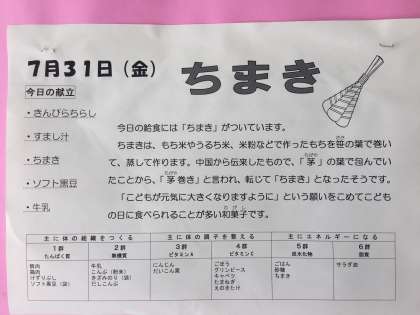 7月31日（金）
ちまき
今日の献立
・きんぴらちらし
・すまし汁
・ちまき
・ソフト黒豆
・牛乳
今日の給食には「ちまき」がついています。
ちまきは、もち米やうるち米、米粉などで作ったもちを笹の葉で巻い
て、蒸して作ります。中国から伝来したもので、「茅」の葉で包んでい
たことから、「茅巻き」と言われ、転じて「ちまき」となったそうです。
「こどもが元気に大きくなりますように」という願いをこめてこども
の日に食べられることが多い和菓子です。
主に体の組織をつくる 主に体の調子を整える 主にエネルギーになる
1群 2群 3群 4群 5群 6群
たんぱく質 無機質 ビタミンA ビタミンC 炭水化物 脂質
鶏肉 牛乳 にんじん ごぼう ごはん サラダ油
こんぶ（粉末） だいこん葉 グリンピース 砂糖
けずりぶし きざみのり（袋） キャベツ ちまき
ソフト黒豆（袋） だしこんぶ たまねぎ
えのきたけ